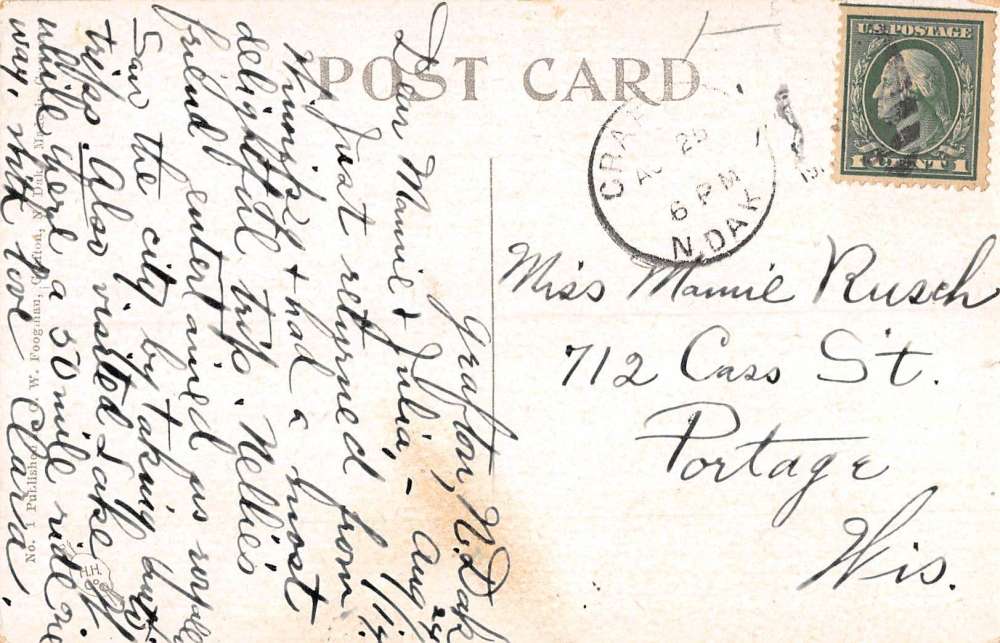 POST CARD
U.S. POSTAGE
1 CENT 1
GRAF
AU 25
6 PM
N. DAK
Miss Mamie Rusch
712 Cass St.
Portage
Wis.
Grafton, N. Dak
Aug 24/17.
Dear Mamie & Julia, -
Just returned from
Winnipeg & had a most
delightful trip. Nellie's
friend entertained us royally
Saw the city by taking auto
trips Also visited Lake
while there a 50 mile ride one
way, much love Clara.
No. 1 Published C. W. Foogman, Grafton, N. Dak.
H.H.